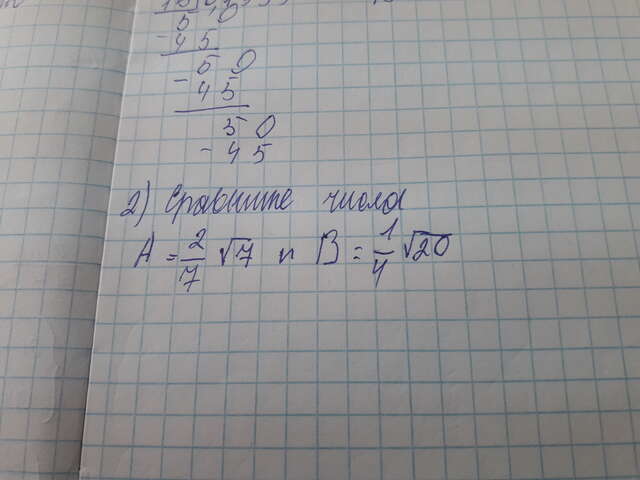 50
- 45
50
- 45
50
- 45
2) Сравните числа
A = 2/7 √7 и B = 1/4 √20